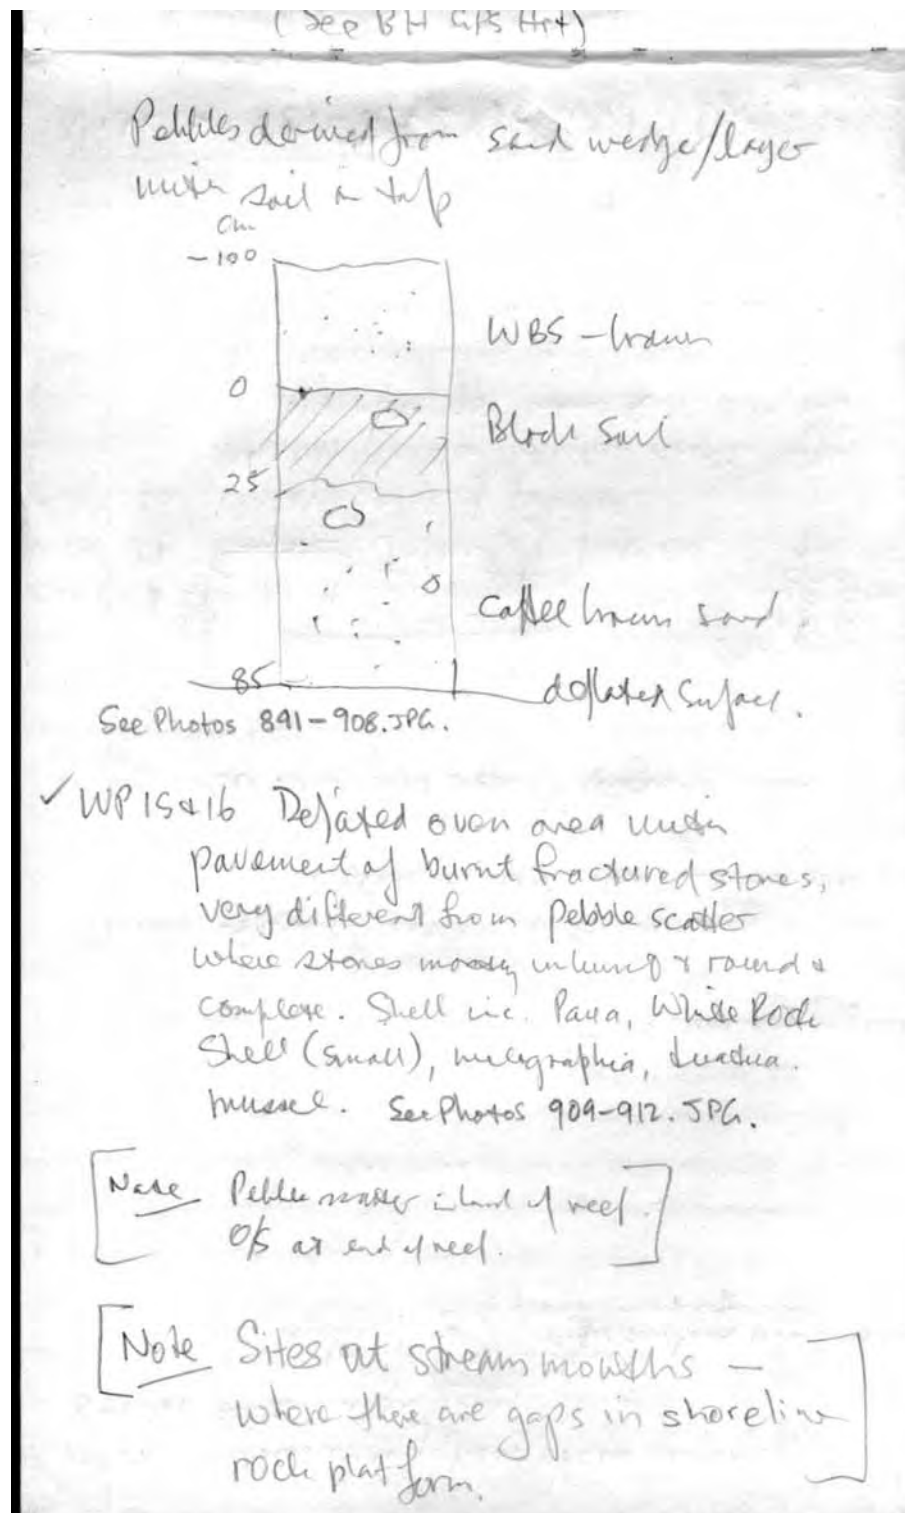 (See BH GPS Hrt)
Pebbles derived from sand wedge/layer
with soil on top
cm
-100
WBS - brown
0
Black Soil
25
Coffee brown sand
85
deflated surface.
See Photos 891-908.JPG.
✓ WP 15 & 16 Deflated oven area with
pavement of burnt fractured stones,
very different from pebble scatter
where stones mostly unburnt & round &
complete. Shell inc. Paua, White Rock
Shell (small), melagraphia, tuatua.
mussel. See Photos 909-912.JPG.
Note Pebble scatter inland of reef.
O/S at end of reef.
Note Sites at stream mouths -
where there are gaps in shoreline
rock platform.